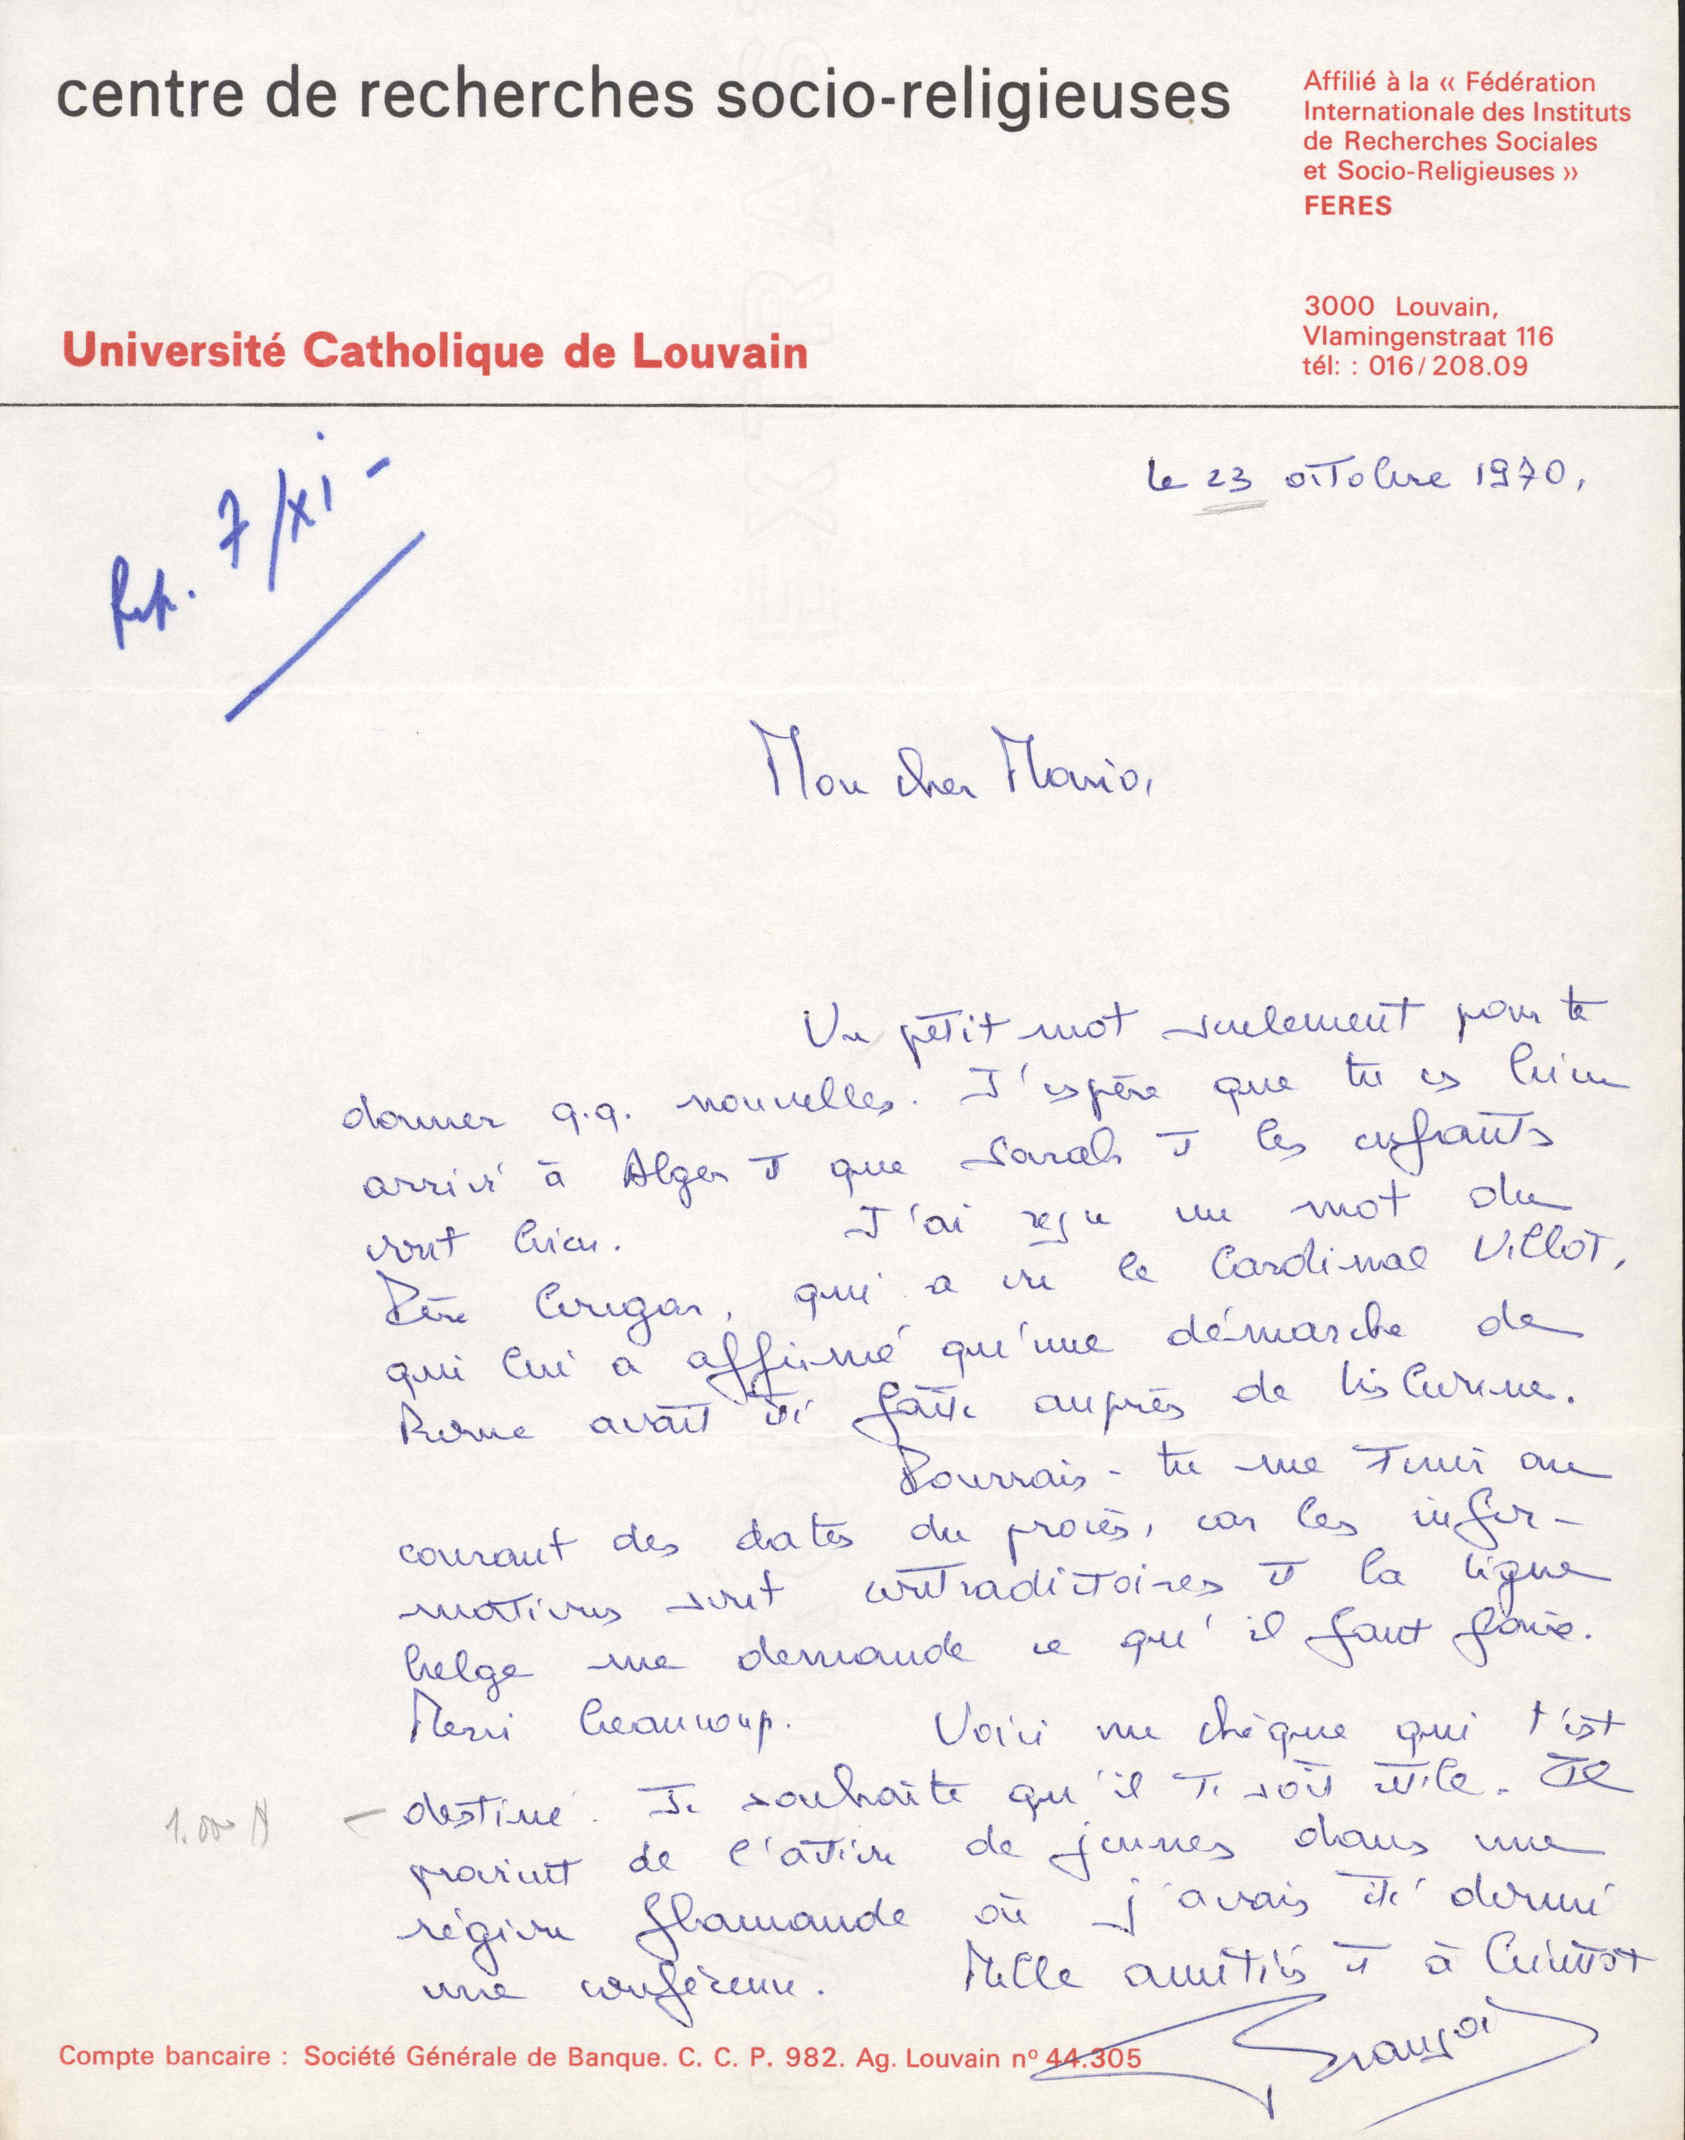 centre de recherches socio-religieuses
Affilié à la « Fédération
Internationale des Instituts
de Recherches Sociales
et Socio-Religieuses »
FERES
3000 Louvain,
Vlamingenstraat 116
tél: : 016/208.09
Université Catholique de Louvain
le 23 octobre 1970,
Rép. 7/XI -
Mon cher Mario,
Un petit mot seulement pour te
donner q.q. nouvelles. J'espère que tu es bien
arrivé à Alger et que Sarah et les enfants
vont bien. J'ai reçu un mot du
Père Congar, qui a vu le Cardinal Villot,
qui lui a affirmé qu'une démarche de
Rome avait été faite auprès de Lisbonne.
Pourrais-tu me tenir au
courant des dates du procès, car les infor-
mations sont contradictoires et la ligue
belge me demande ce qu'il faut faire.
Merci beaucoup. Voici un chèque qui t'est
destiné. Je souhaite qu'il te soit utile. Il
provient de l'action de jeunes dans une
région flamande où j'avais été donné
une conférence. Mille amitiés et à bientôt
François
Compte bancaire : Société Générale de Banque. C. C. P. 982. Ag. Louvain nº 44.305